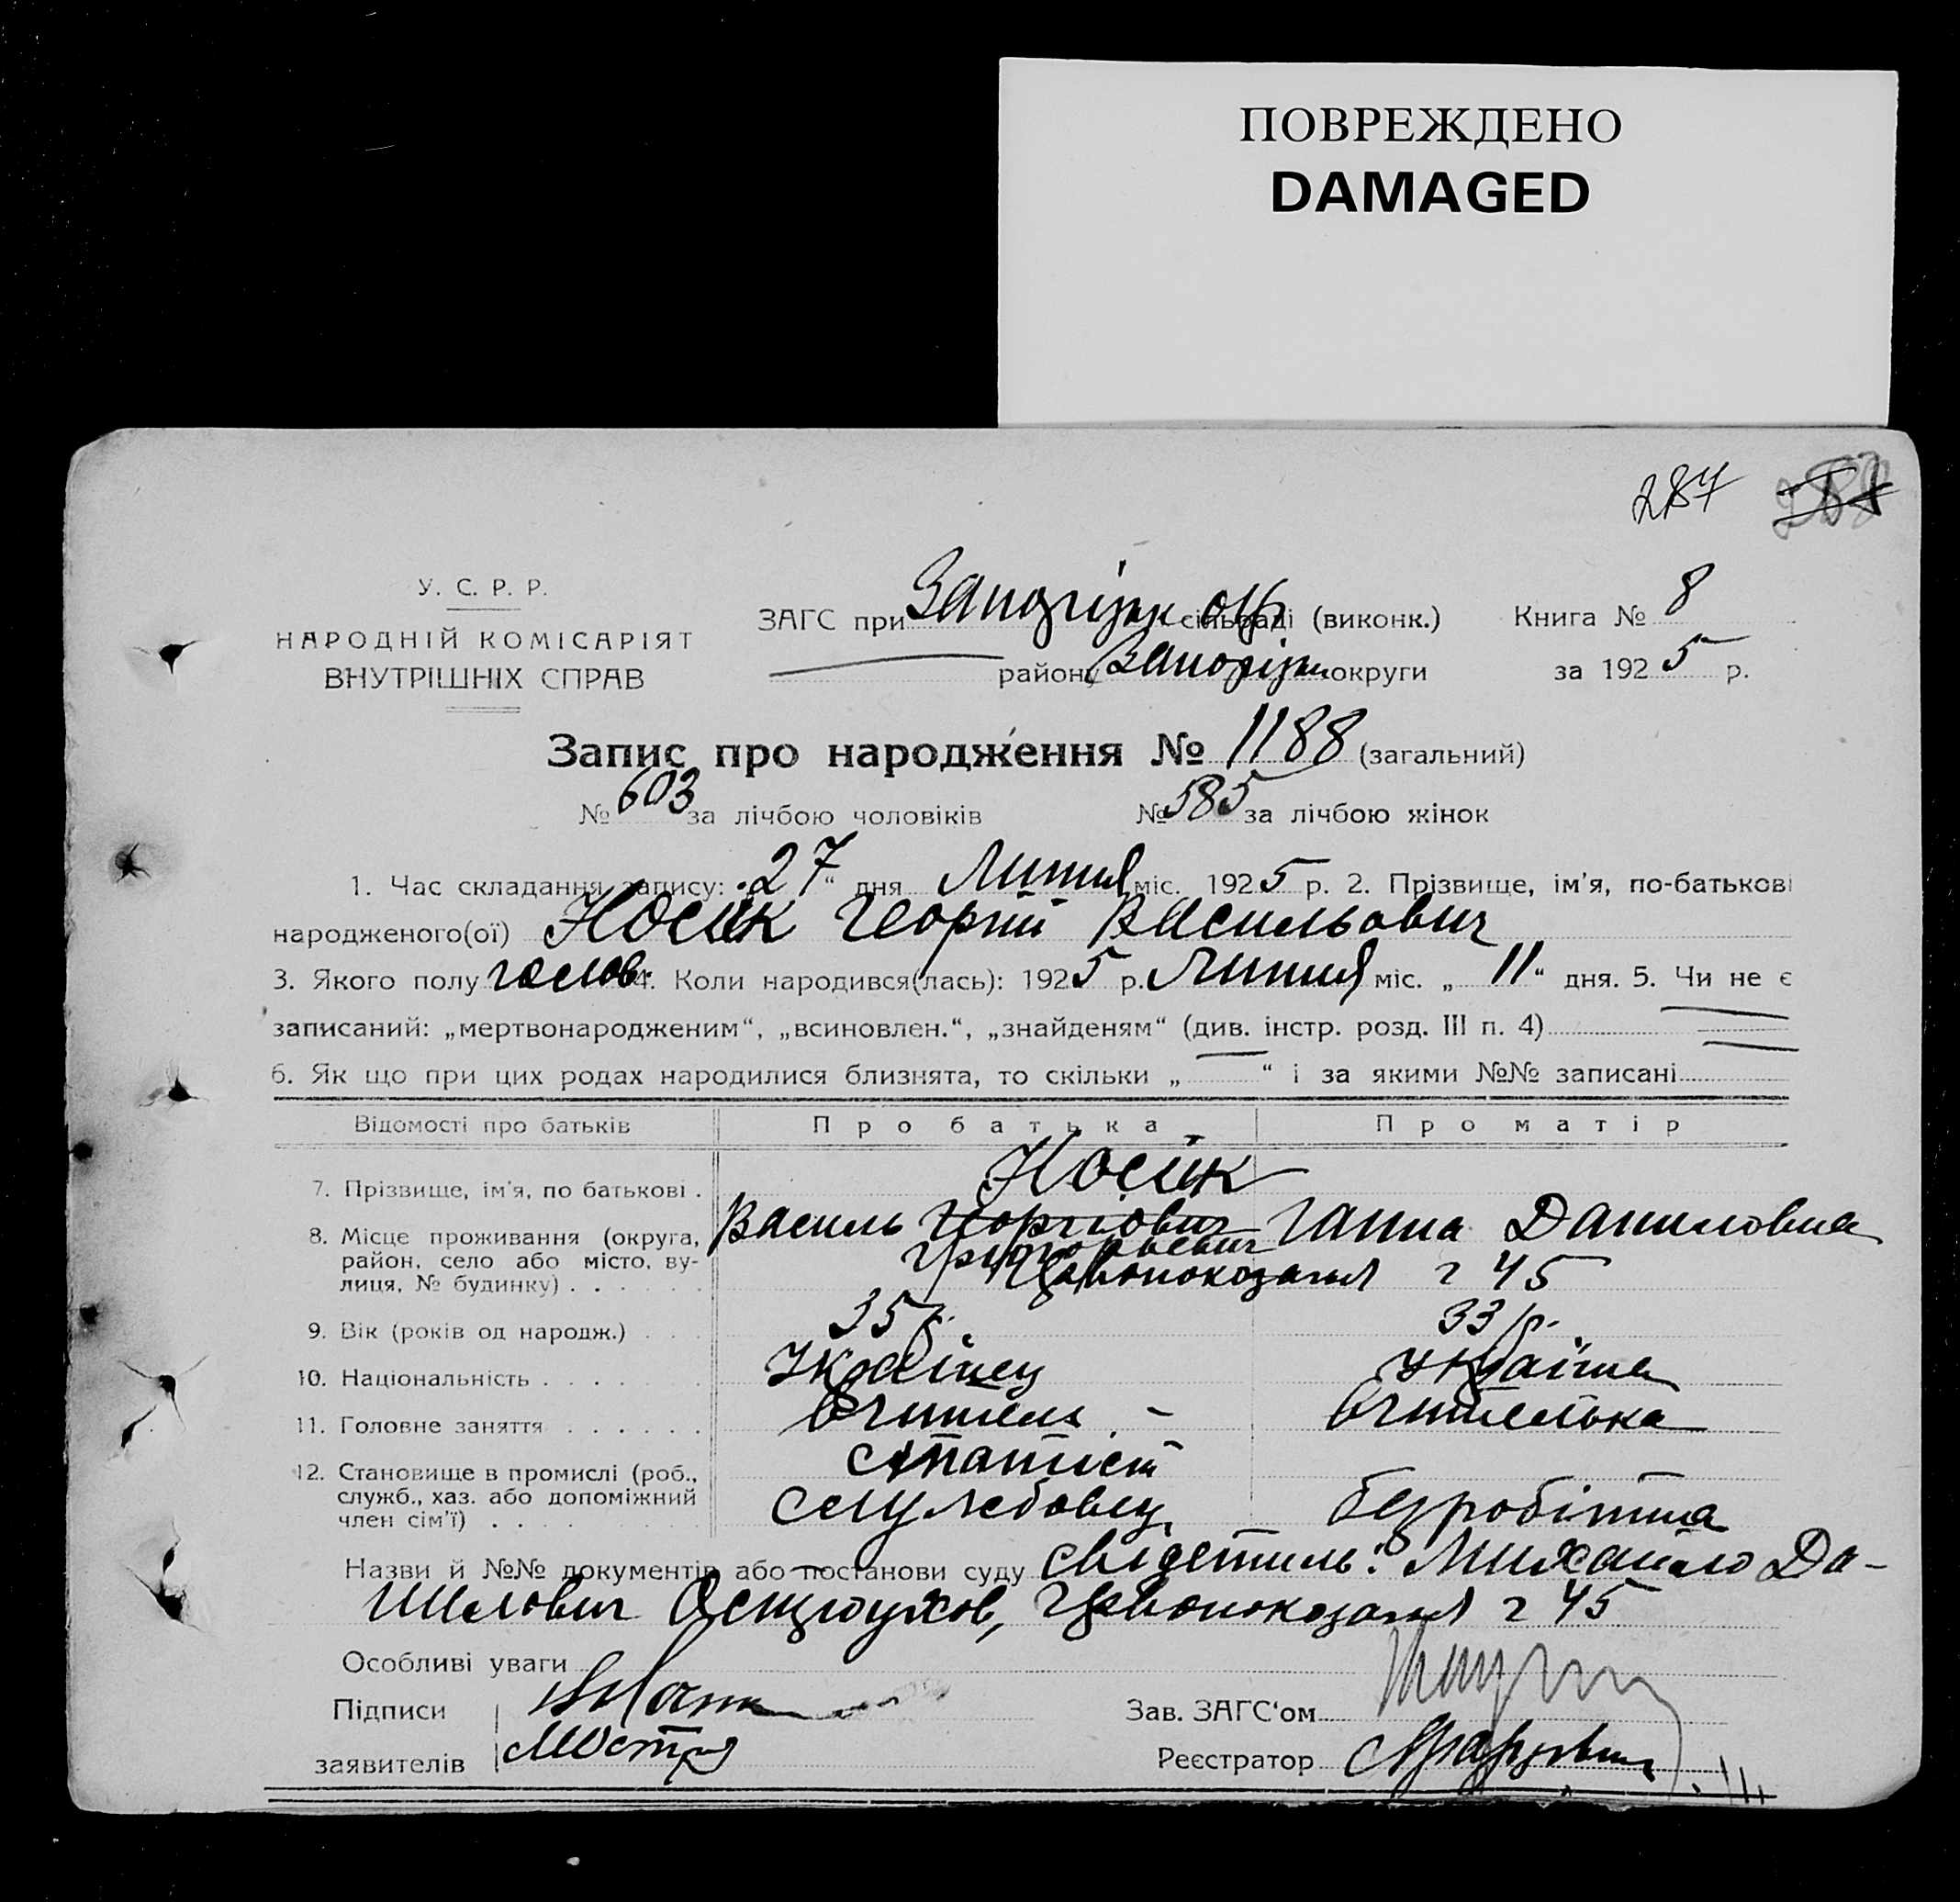 ПОВРЕЖДЕНО
DAMAGED
287
У. С. Р. Р.
НАРОДНІЙ КОМІСАРІЯТ
ВНУТРІШНІХ СПРАВ
ЗАГС при Запоріжк окр сільраді (виконк.) Книга № 8
району Запоріжк округи за 1925 р.
Запис про народження № 1188 (загальний)
№ 603 за лічбою чоловіків № 585 за лічбою жінок
1. Час складання запису: „27“ дня Липня міс. 1925 р. 2. Прізвище, ім'я, по-батькові
народженого(ої) Носик Георгій Васильович
3. Якого полу чолов. 4. Коли народився(лась): 1925 р. Липня міс. „11“ дня. 5. Чи не є
записаний: „мертвонародженим“, „всиновлен.“, „знайденям“ (див. інстр. розд. III п. 4)
6. Як що при цих родах народилися близнята, то скільки „ — “ і за якими №№ записані
Відомості про батьків Про батька Про матір
7. Прізвище, ім'я, по батькові . Носик
Василь Георгіович Ганна Даниловна
Григорьевич
8. Місце проживання (округа, район, село або місто, вулиця, № будинку) . . . . . . Червонокозача ч 45
9. Вік (років од народж.) . . . 35 р. 33 р.
10. Національність . . . . . . Українец Українка
11. Головне заняття . . . . . . Вчитель - Вчителька
статист
12. Становище в промислі (роб.,
служб., хаз. або допоміжний
член сім'ї) . . . . . . Службовец безробітна
Назви й №№ документів або постанови суду свідетиль: Михайло Да-
нилович, Червонокозача ч 45
Особливі уваги
Підписи
заявителів
Зав. ЗАГС'ом
Реєстратор